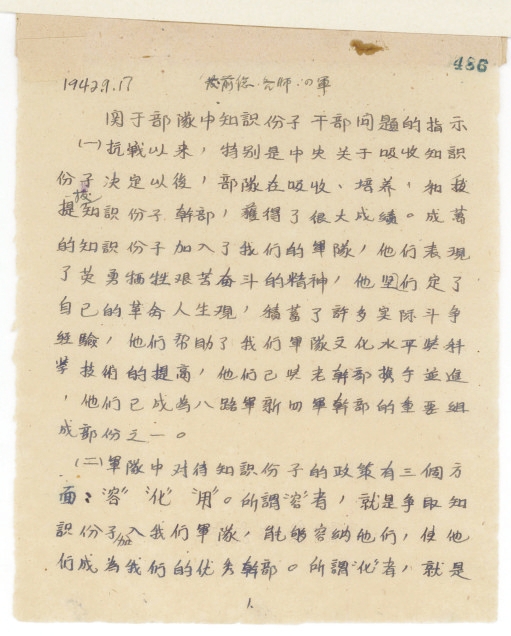 486
1942.9.17 发前总、各师、四軍
関于部隊中知識份子干部问题的指示
(一)抗戰以来，特别是中央关于吸收知識
份子决定以後，部隊在吸收、培养，和
提拔知識份子幹部，獲得了很大成績。成萬
的知識份子加入了我们的軍隊，他们表现
了英勇牺牲艰苦奋斗的精神，他们定了
自己的革命人生观，積蓄了許多实际斗争
经驗，他们帮助了我们軍隊文化水平與科
學技術的提高，他们已與老幹部携手並進
，他们已成為八路軍新四軍幹部的重要組
成部份之一。
(二)軍隊中对待知識份子的政策有三個方
面：“容”“化”“用”。所謂“容”者，就是争取知
識份子加入我们軍隊，能够容纳他们，使他
们成為我们的优秀幹部。所謂“化”者，就是
1.